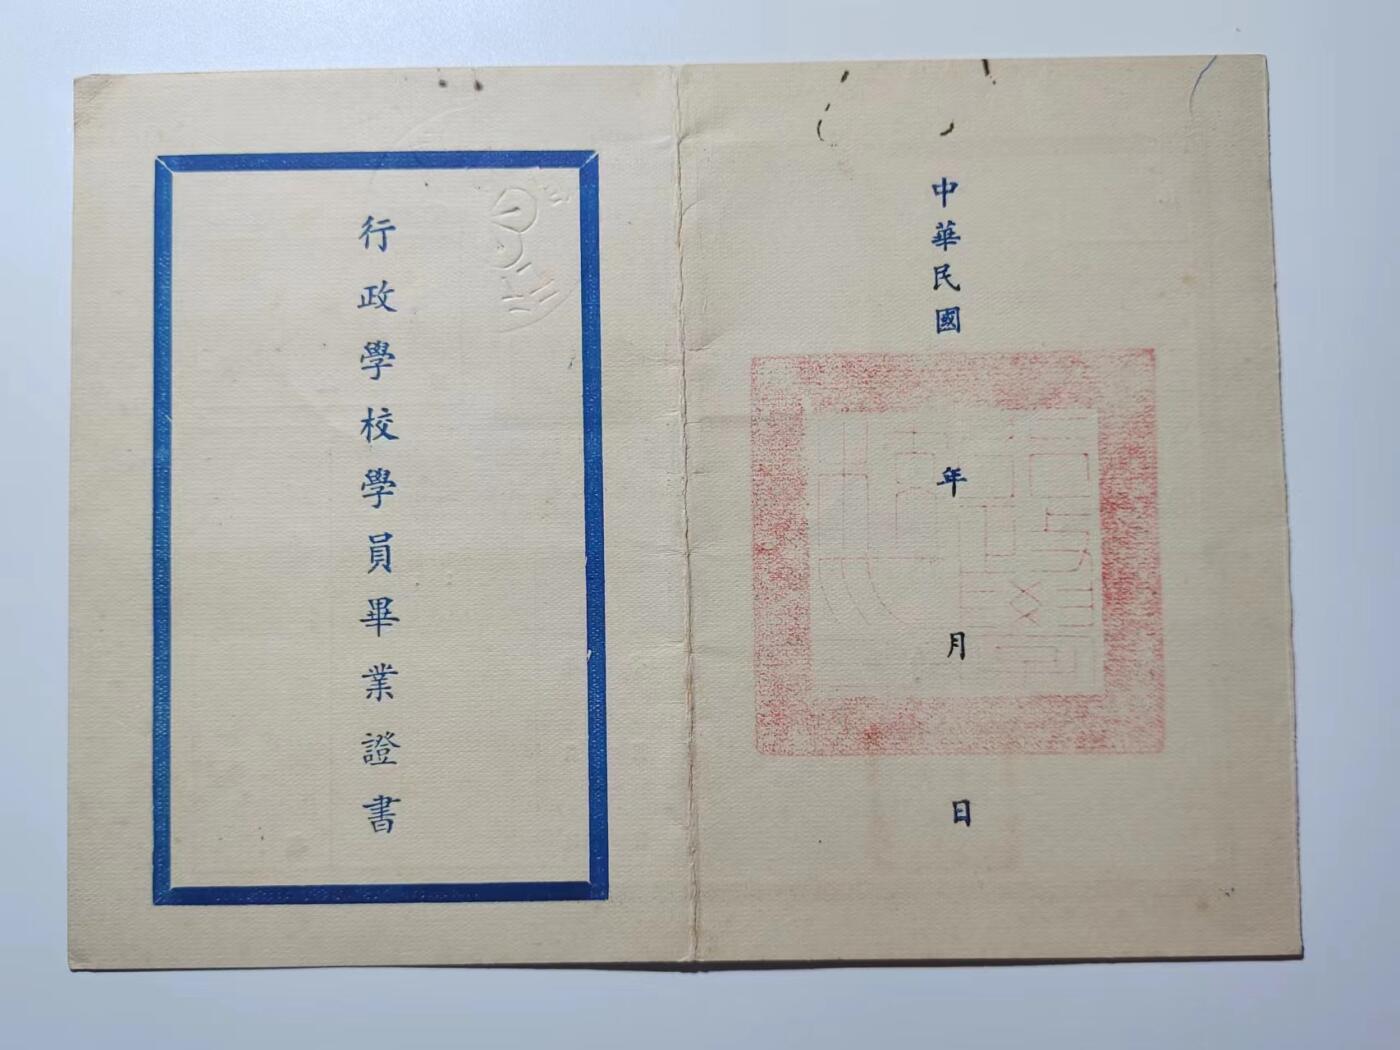 中華民國 年 月 日
行政學校學員畢業證書